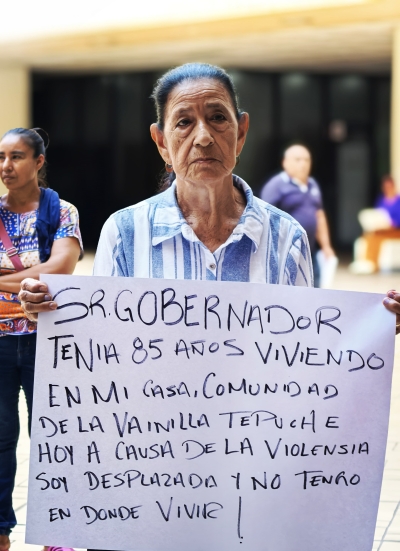 SR. GOBERNADOR
TENIA 85 AÑOS VIVIENDO
EN MI CASA, COMUNIDAD
DE LA VAINILLA TEPUCHE
HOY A CAUSA DE LA VIOLENSIA
SOY DESPLAZADA Y NO TENGO
EN DONDE VIVIR!